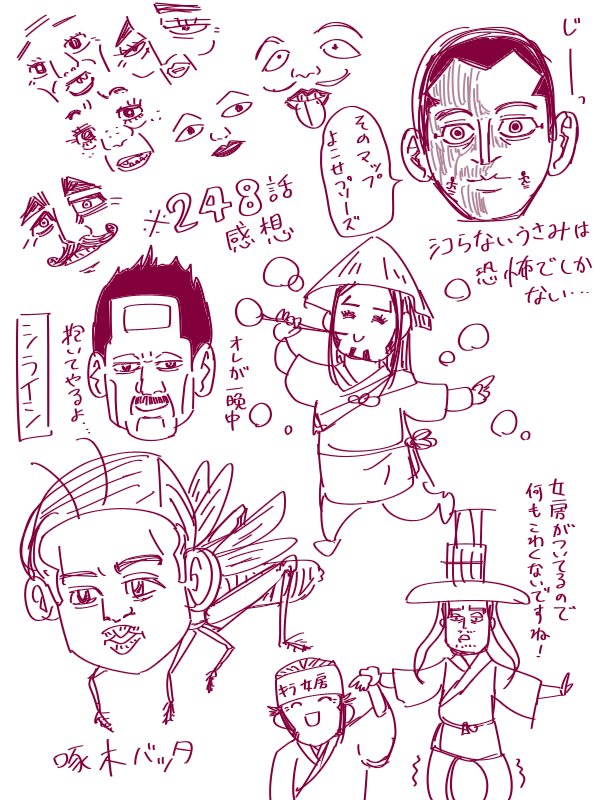 じーっ
そのマップ
よこせプリーズ
※248話
感想
シコらないうさみは
恐怖でしか
ない…
シライシ
抱いてやるよ…
オレが一晩中
女房がついてるので
何もこわくないですね!
キラ女房
啄木バッタ